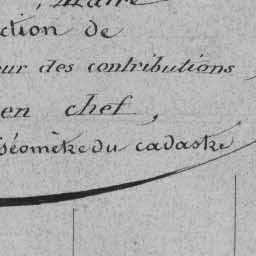 Maire
ction de
eur des contributions
en chef,
Géomètre du cadastre